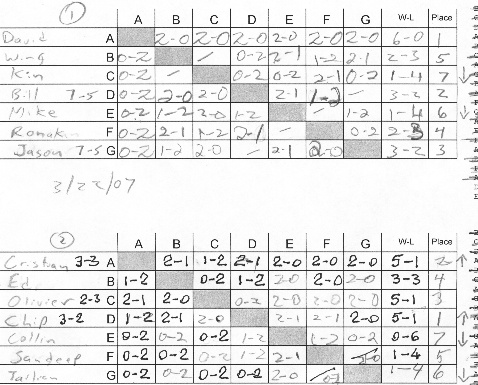 1
A B C D E F G W-L Place
David A 2-0 2-0 2-0 2-0 2-0 2-0 6-0 1
Wing B 0-2 / 0-2 2-1 1-2 2-1 2-3 5
Kin C 0-2 - 0-2 0-2 2-1 0-2 1-4 7
Bill 7-5 D 0-2 2-0 2-0 2-1 1-2 - 3-2 2
Mike E 0-2 1-2 2-0 1-2 - 1-2 1-4 6
Ronak F 0-2 2-1 1-2 2-1 - 0-2 2-3 4
Jason 7-5 G 0-2 1-2 2-0 - 2-1 2-0 3-2 3
3/22/07
2
A B C D E F G W-L Place
Cristian 3-3 A 2-1 1-2 2-1 2-0 2-0 2-0 5-1 2
Ed B 1-2 0-2 1-2 2-0 2-0 2-0 3-3 4
Olivier 2-3 C 2-1 2-0 0-2 2-0 2-0 2-0 5-1 3
Chip 3-2 D 1-2 2-1 2-0 2-1 2-1 2-0 5-1 1
Collin E 0-2 0-2 0-2 1-2 1-2 0-2 0-6 7
Sandeep F 0-2 0-2 0-2 1-2 2-1 1-4 5
G 0-2 0-2 0-2 0-2 2-0 1-4 6